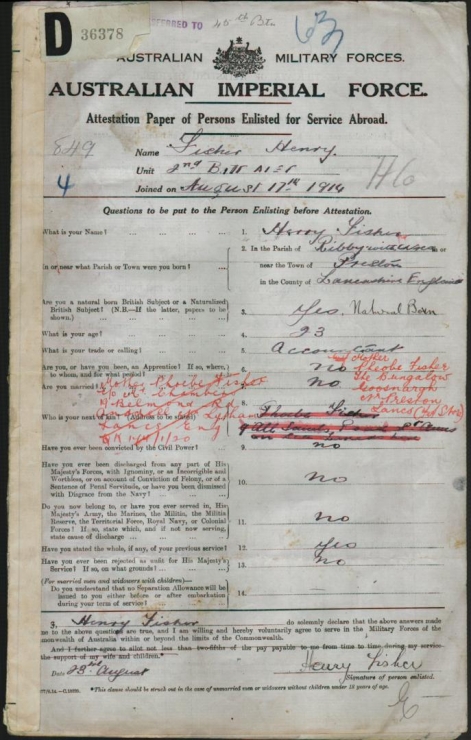 D 36378
FERRED TO 45th Btn
63
AUSTRALIAN MILITARY FORCES.
AUSTRALIAN IMPERIAL FORCE.
Attestation Paper of Persons Enlisted for Service Abroad.
849
Name Fisher Henry.
Unit 2nd Batt AIEF
Joined on August 17th 1914
4
H6
Questions to be put to the Person Enlisting before Attestation.
What is your Name? 1. Henry Fisher
2. In the Parish of in or
In or near what Parish or Town were you born? near the Town of Preston
in the County of Lancashire England
Are you a natural born British Subject or a Naturalized
British Subject? (N.B.—If the latter, papers to be
shown.) 3. Yes. Natural Born
What is your age? 4. 23
What is your trade or calling? 5. Accountant
Are you, or have you been, an Apprentice? If so, where,
to whom, and for what period? 6. no
Mother
Pheobe Fisher
The Bungalow
Goosnargh
Nr Preston
Lancs
Are you married? 7. no
Mother Phoebe Fisher
Rd
Lytham
Lancs Eng
1/20
Who is your next of kin? (Address to be stated) 8. Phoebe Fisher
St Annes
Have you ever been convicted by the Civil Power? 9. no
Have you ever been discharged from any part of His
Majesty's Forces, with Ignominy, or as Incorrigible and
Worthless, or on account of Conviction of Felony, or of a
Sentence of Penal Servitude, or have you been dismissed
with Disgrace from the Navy? 10. no
Do you now belong to, or have you ever served in, His
Majesty's Army, the Marines, the Militia, the Militia
Reserve, the Territorial Force, Royal Navy, or Colonial
Forces? If so, state which, and if not now serving,
state cause of discharge 11. no
Have you stated the whole, if any, of your previous service? 12. Yes
Have you ever been rejected as unfit for His Majesty's
Service? If so, on what grounds? 13. no
(For married men and widowers with children)—
Do you understand that no Separation Allowance will be
issued to you either before or after embarkation
during your term of service? 14.
I, Henry Fisher do solemnly declare that the above answers made
me to the above questions are true, and I am willing and hereby voluntarily agree to serve in the Military Forces of the
monwealth of Australia within or beyond the limits of the Commonwealth.
And I further agree to allot not less than two-fifths of the pay payable to me from time to time during my service
the support of my wife and children.*
Date 23nd August Henry Fisher
Signature of person enlisted.
*This clause should be struck out in the case of unmarried men or widowers without children under 18 years of age.